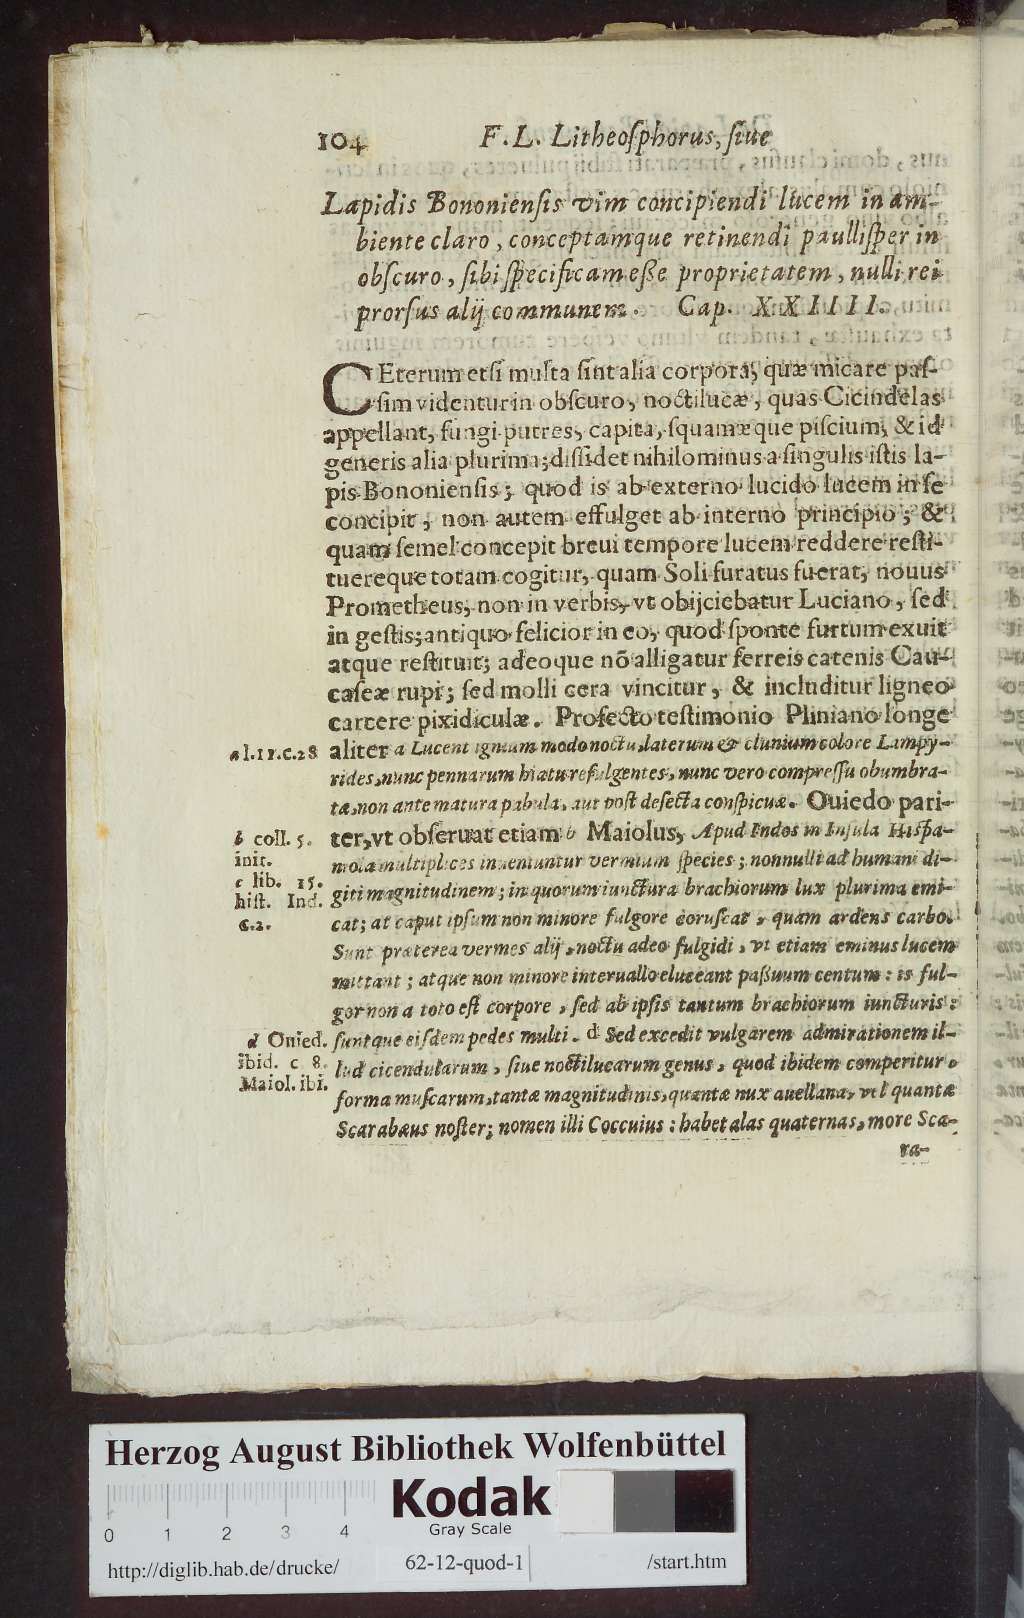 104 F. L. Litheoſphorus, ſiue
Lapidis Bononienſis vim concipiendi lucem in am-
biente claro, conceptamque retinendi paulliſper in
obſcuro, ſibi ſpecificam eße proprietatem, nulli rei
prorſus alij communem. Cap. XXIIII.
CEterum etſi multa ſint alia corpora, quæ micare paſ-
ſim videntur in obſcuro, noctilucæ, quas Cicindelas
appellant, fungi putres, capita, ſquamæque piſcium, & id
generis alia plurima; diſſidet nihilominus a ſingulis iſtis la-
pis Bononienſis; quod is ab externo lucido lucem in ſe
concipit, non autem effulget ab interno principio; &
quam ſemel concepit breui tempore lucem reddere reſti-
tuereque totam cogitur, quam Soli furatus fuerat, nouus
Prometheus, non in verbis, vt obijciebatur Luciano, ſed
in geſtis; antiquo felicior in eo, quod ſponte furtum exuit
atque reſtituit; adeoque nõ alligatur ferreis catenis Cau-
caſeæ rupi; ſed molli cera vincitur, & includitur ligneo
carcere pixidiculæ. Profecto teſtimonio Pliniano longe
a l. 11. c. 28 aliter a Lucent ignium modo noctu, laterum & clunium colore Lampy-
rides, nunc pennarum hiatu refulgentes, nunc vero compreſſu obumbra-
tæ, non ante matura pabula, aut post deſecta conſpicuæ. Ouiedo pari-
b coll. 5. ter, vt obſeruat etiam b Maiolus, Apud Indos in Inſula Hiſpa-
init. niola multiplices inueniuntur vermium ſpecies; nonnulli ad humani di-
c lib. 15. giti magnitudinem; in quorum iunctura brachiorum lux plurima emi-
hiſt. Ind. cat; at caput ipſum non minore fulgore coruſcat, quam ardens carbo.
c. 2. Sunt præterea vermes alij, noctu adeo fulgidi, vt etiam eminus lucem
mittant; atque non minore interuallo eluceant paßuum centum: is ful-
gor non a toto eſt corpore, ſed ab ipſis tantum brachiorum iuncturis:
d Onied. ſuntque eiſdem pedes multi. d Sed excedit vulgarem admirationem il-
ibid. c 8. lud cicendularum, ſiue noctilucarum genus, quod ibidem comperitur.
Maiol. ibi. forma muſcarum, tantæ magnitudinis, quantæ nux auellana, vel quantæ
Scarabæus noſter; nomen illi Coccuius: habet alas quaternas, more Sca-
ra-
Herzog August Bibliothek Wolfenbüttel
Kodak
Gray Scale
0 1 2 3 4
http://diglib.hab.de/drucke/ 62-12-quod-1 /start.htm